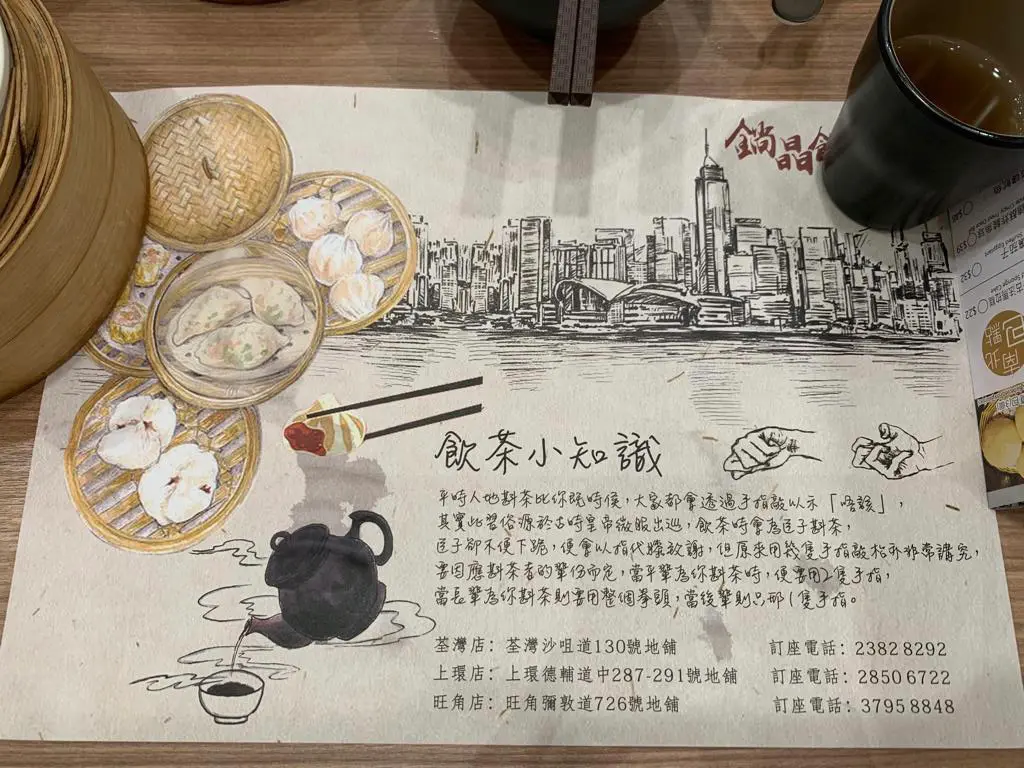 鎗晶館
飲茶小知識
平時人地斟茶比你既時侯，大家都會透過手指敲以示「唔該」，
其實此習俗源於古時皇帝微服出巡，飲茶時會為臣子斟茶，
臣子卻不便下跪，便會以指代膝致謝，但原來用幾隻手指敲枱亦非常講究，
要因應斟茶者的輩份而定，當平輩為你斟茶時，便要用2隻手指，
當長輩為你斟茶則要用整個拳頭，當後輩則只那1隻手指。
荃灣店：荃灣沙咀道130號地鋪 訂座電話：2382 8292
上環店：上環德輔道中287-291號地鋪 訂座電話：2850 6722
旺角店：旺角彌敦道726號地鋪 訂座電話：3795 8848
$48
$39
$32
$22
南北
包點